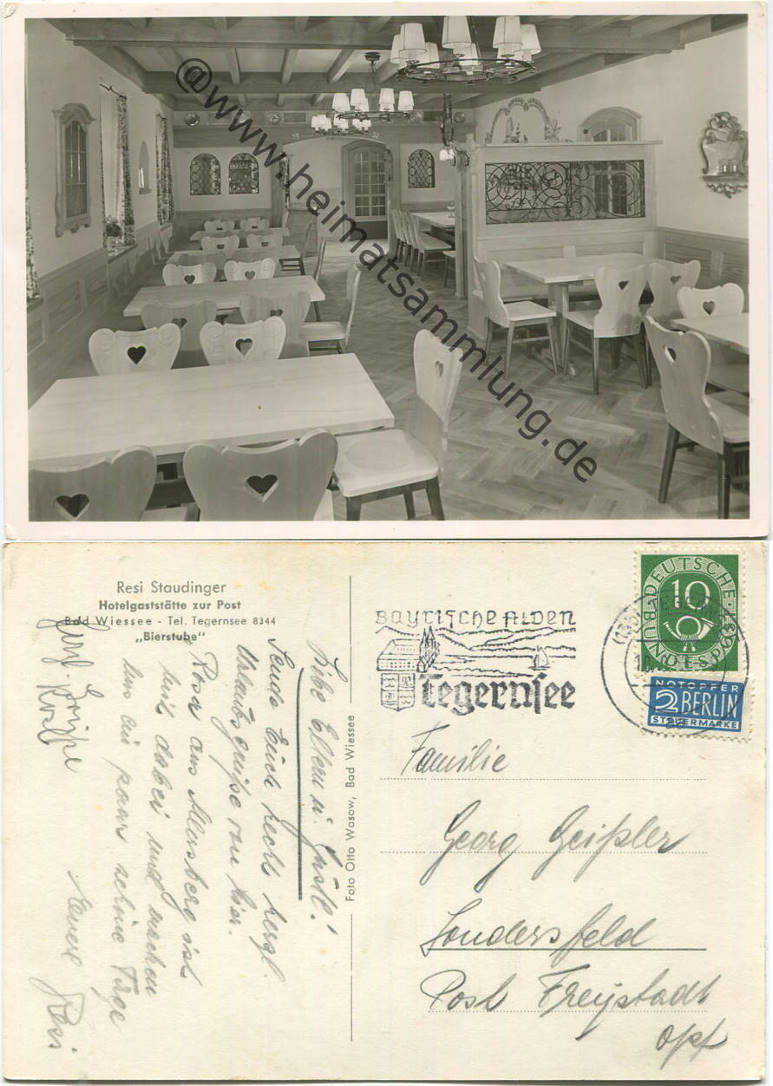 @www.heimatsammlung.de
Resi Staudinger
Hotelgaststätte zur Post
Bad Wiessee - Tel. Tegernsee 8344
„Bierstube"
Liebe Eltern u. Gastl!
Sende Euch recht herzl.
Urlaubsgrüße von hier.
Rosa aus Abensberg ist
mit dabei und machen
uns ein paar schöne Tage
Eure Resi
Herzl. Grüße
Rosa
Foto Otto Wasow, Bad Wiessee
Bayrische Alpen
Tegernsee
DEUTSCHE
BUNDESPOST
10
NOTOPFER
2 BERLIN
STEUERMARKE
Familie
Georg Geißler
Sondersfeld
Post Freystadt
Opf